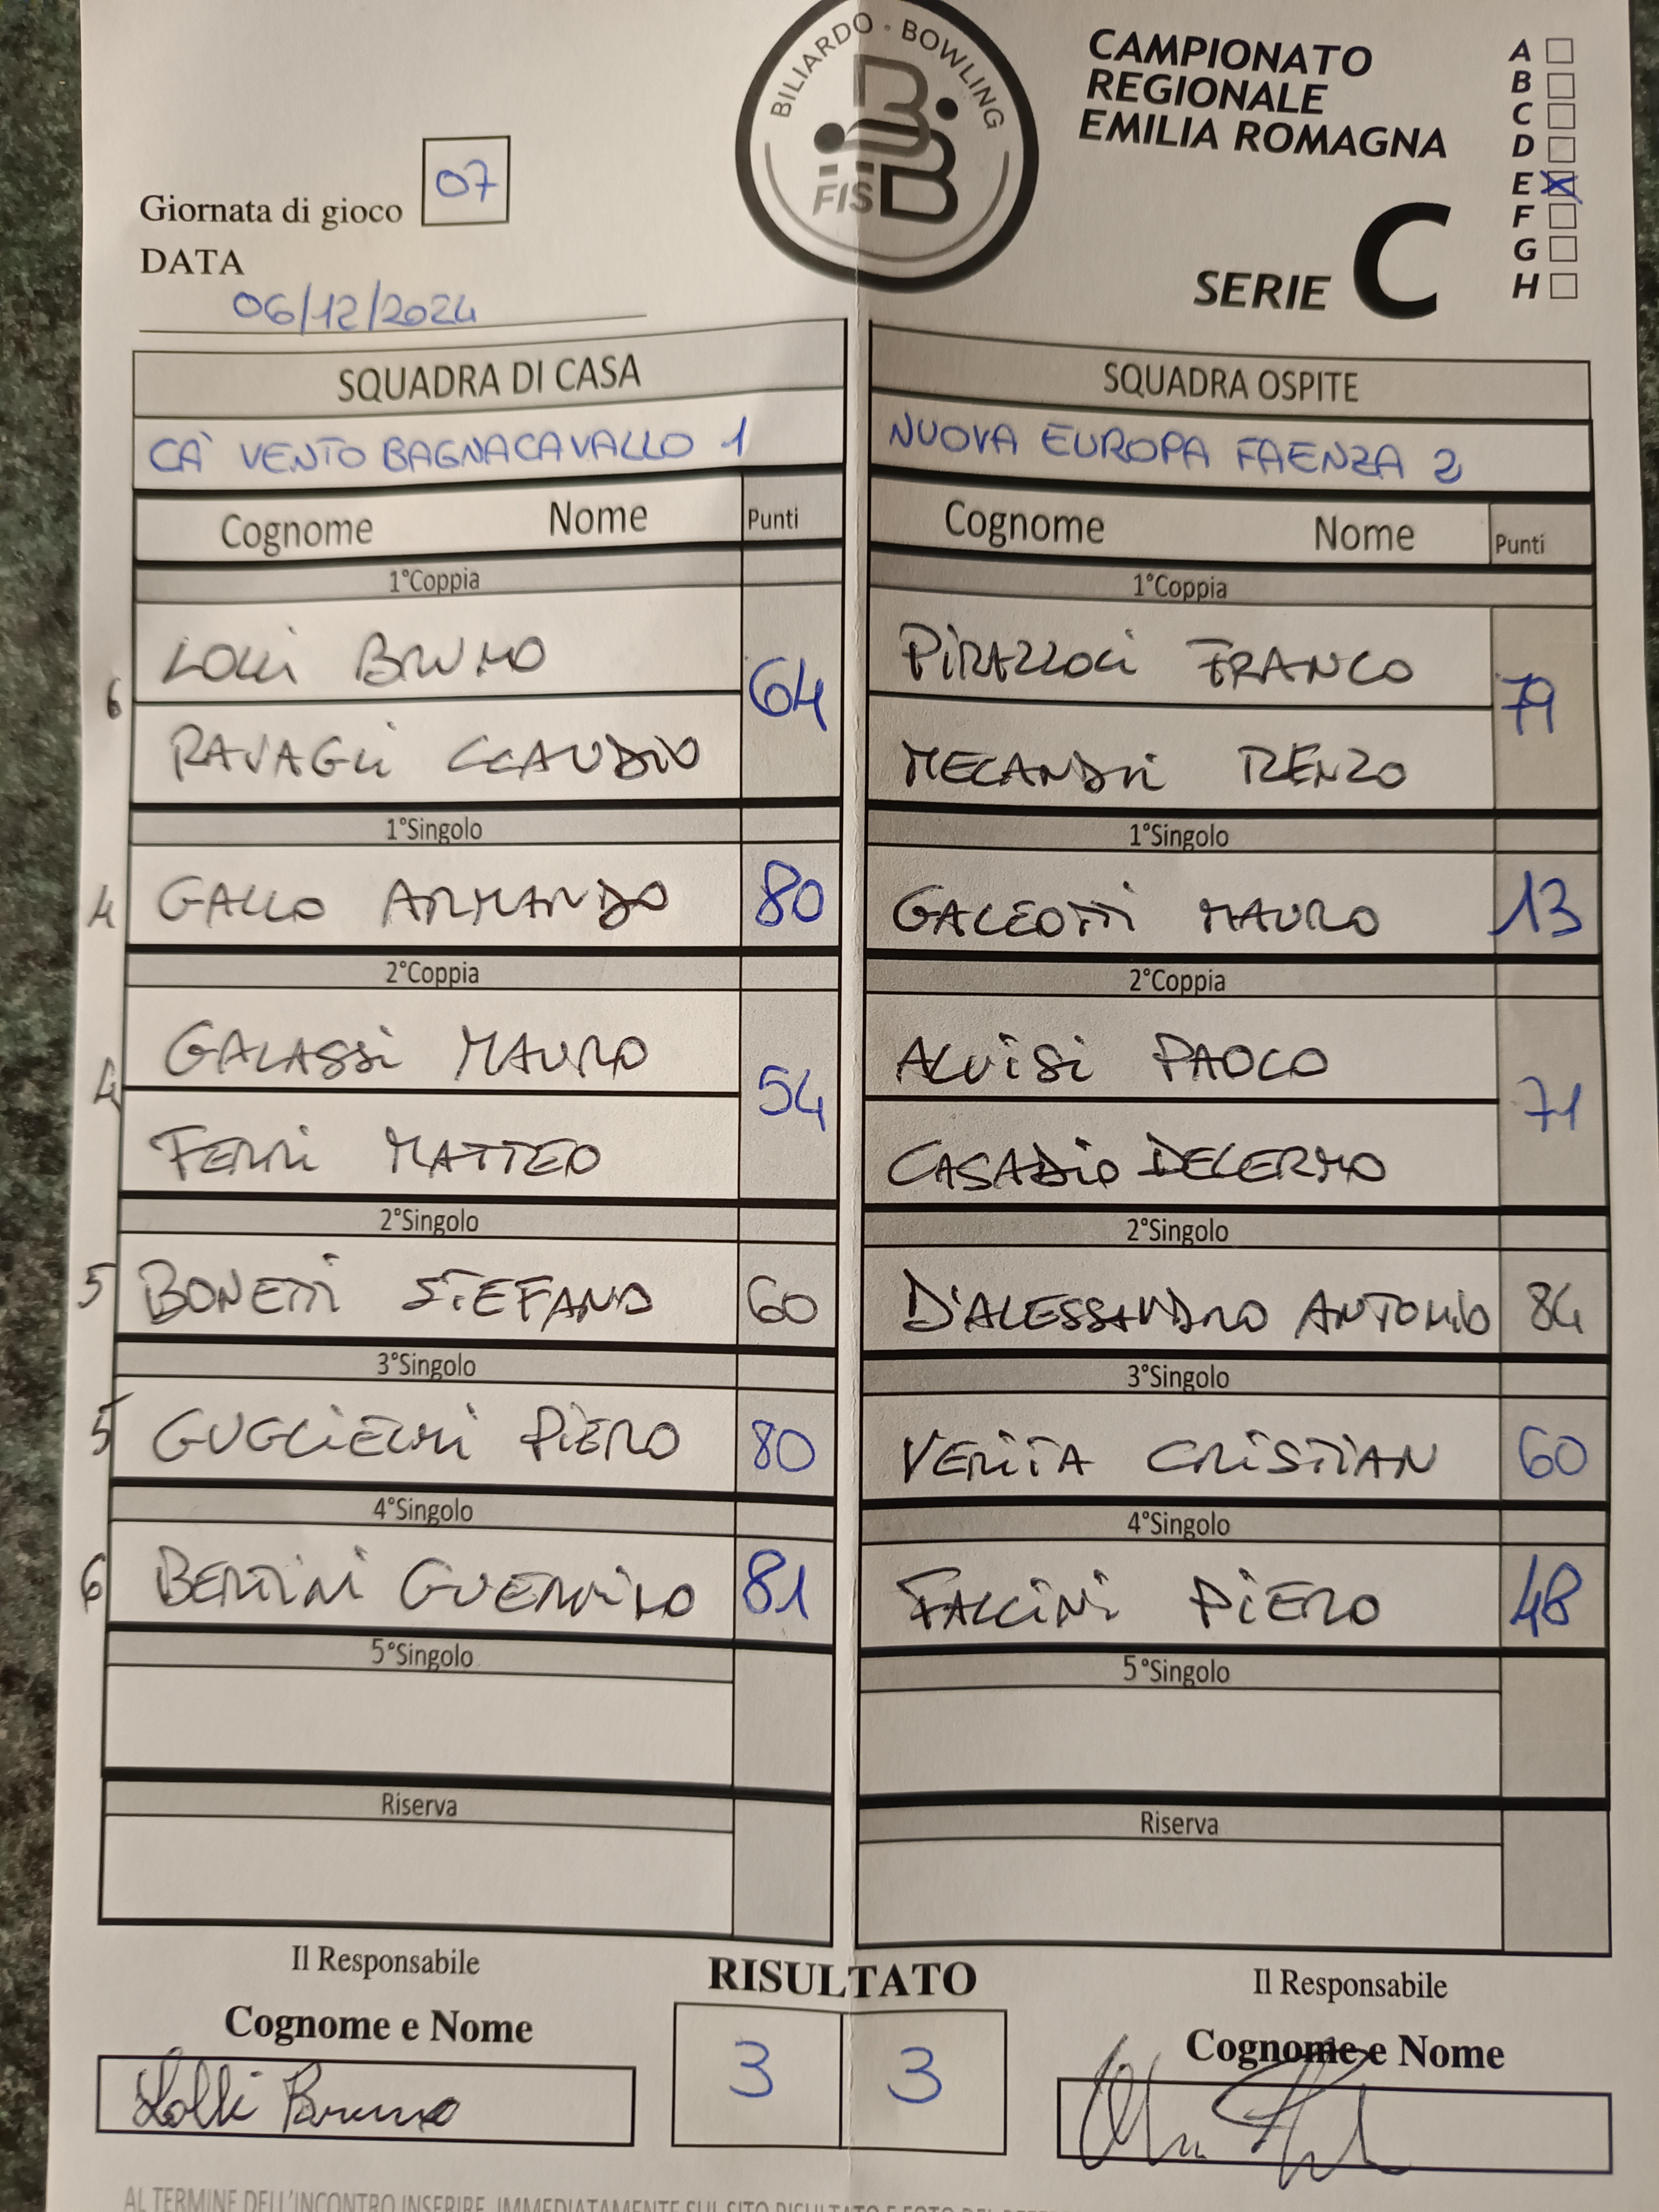 BILIARDO - BOWLING
FISBB
CAMPIONATO
REGIONALE
EMILIA ROMAGNA
SERIE C
A
B
C
D
E X
F
G
H
Giornata di gioco 07
DATA
06/12/2024
SQUADRA DI CASA SQUADRA OSPITE
CA' VENTO BAGNACAVALLO 1 NUOVA EUROPA FAENZA 2
Cognome Nome Punti Cognome Nome Punti
1°Coppia 1°Coppia
LOLLI BRUNO PIRAZZOLI FRANCO
6 64 79
RAVAGLI CLAUDIO MELANDRI RENZO
1°Singolo 1°Singolo
4 GALLO ARMANDO 80 GALEOTTI MAURO 13
2°Coppia 2°Coppia
GALASSI MAURO ALVISI PAOLO
4 54 71
FERRI MATTEO CASADIO DELERMO
2°Singolo 2°Singolo
5 BONETTI STEFANO 60 D'ALESSANDRO ANTONIO 84
3°Singolo 3°Singolo
5 GUGLIELMI PIERO 80 VERITA CRISTIAN 60
4°Singolo 4°Singolo
6 BERTINI GUERRINO 81 FALCINI PIERO 48
5°Singolo 5°Singolo
Riserva Riserva
Il Responsabile RISULTATO Il Responsabile
Cognome e Nome Cognome e Nome
Lolli Bruno 3 3
AL TERMINE DELL'INCONTRO INSERIRE IMMEDIATAMENTE SUL SITO RISULTATO E FOTO DEL